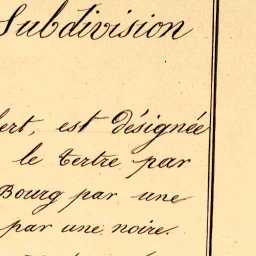 Subdivision
est désignée
le Tertre par
Bourg par une
par une noire.